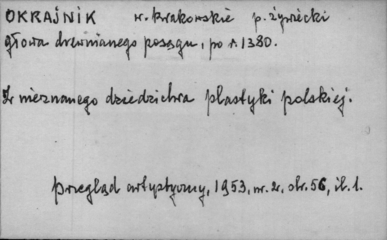 OKRAJNIK w. krakowskie p. żywiecki
głowa drewnianego posągu, po r. 1380.
Z nieznanego dziedzictwa plastyki polskiej.
Przegląd artystyczny, 1953, nr. 2, str. 56, il. 1.